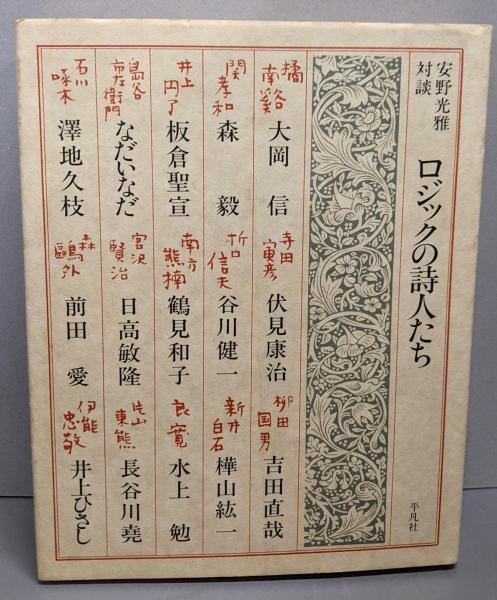 安野光雅
対談
ロジックの詩人たち
平凡社
橘
南谿
大岡 信
寺田
寅彦
伏見康治
柳田
国男
吉田直哉
関
孝和
森 毅
折口
信夫
谷川健一
新井
白石
樺山紘一
井上
円了
板倉聖宣
南方
熊楠
鶴見和子
良寛
水上 勉
島谷
市左衛門
なだいなだ
宮沢
賢治
日高敏隆
片山
東熊
長谷川堯
石川
啄木
澤地久枝
森
鷗外
前田 愛
伊能
忠敬
井上ひさし